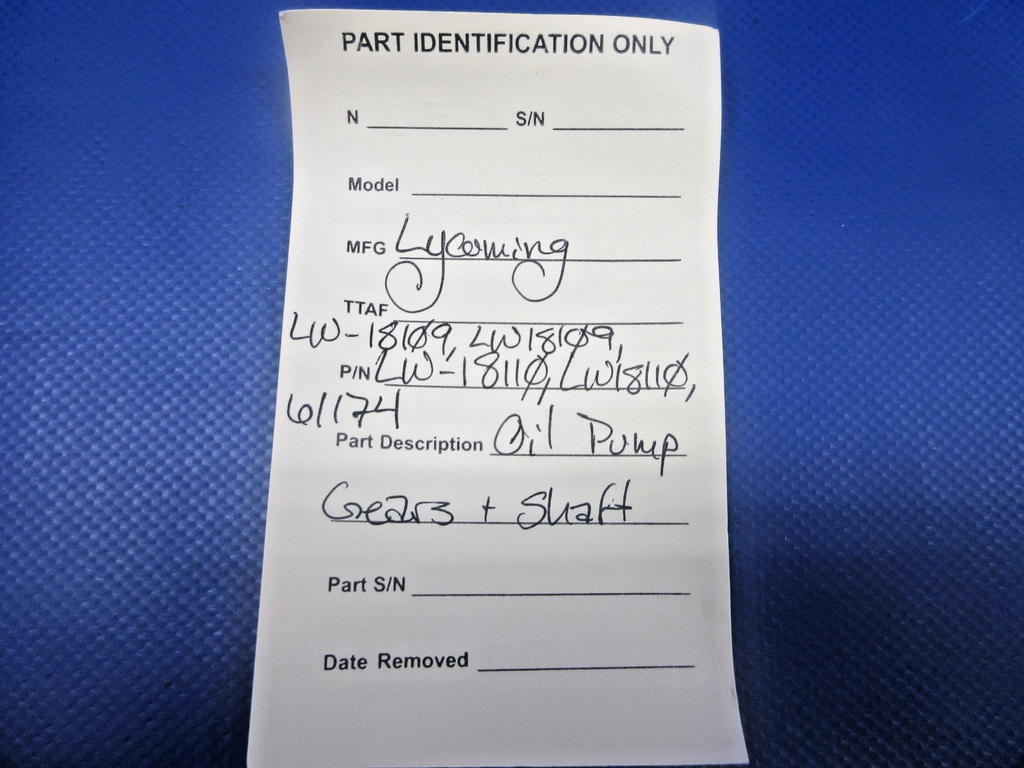 PART IDENTIFICATION ONLY
N ___________ S/N ___________
Model ___________
MFG Lycoming
TTAF ___________
LW-18109, LW18109,
P/N LW-18110, LW18110,
61174
Part Description Oil Pump
Gears + Shaft
Part S/N ___________
Date Removed ___________